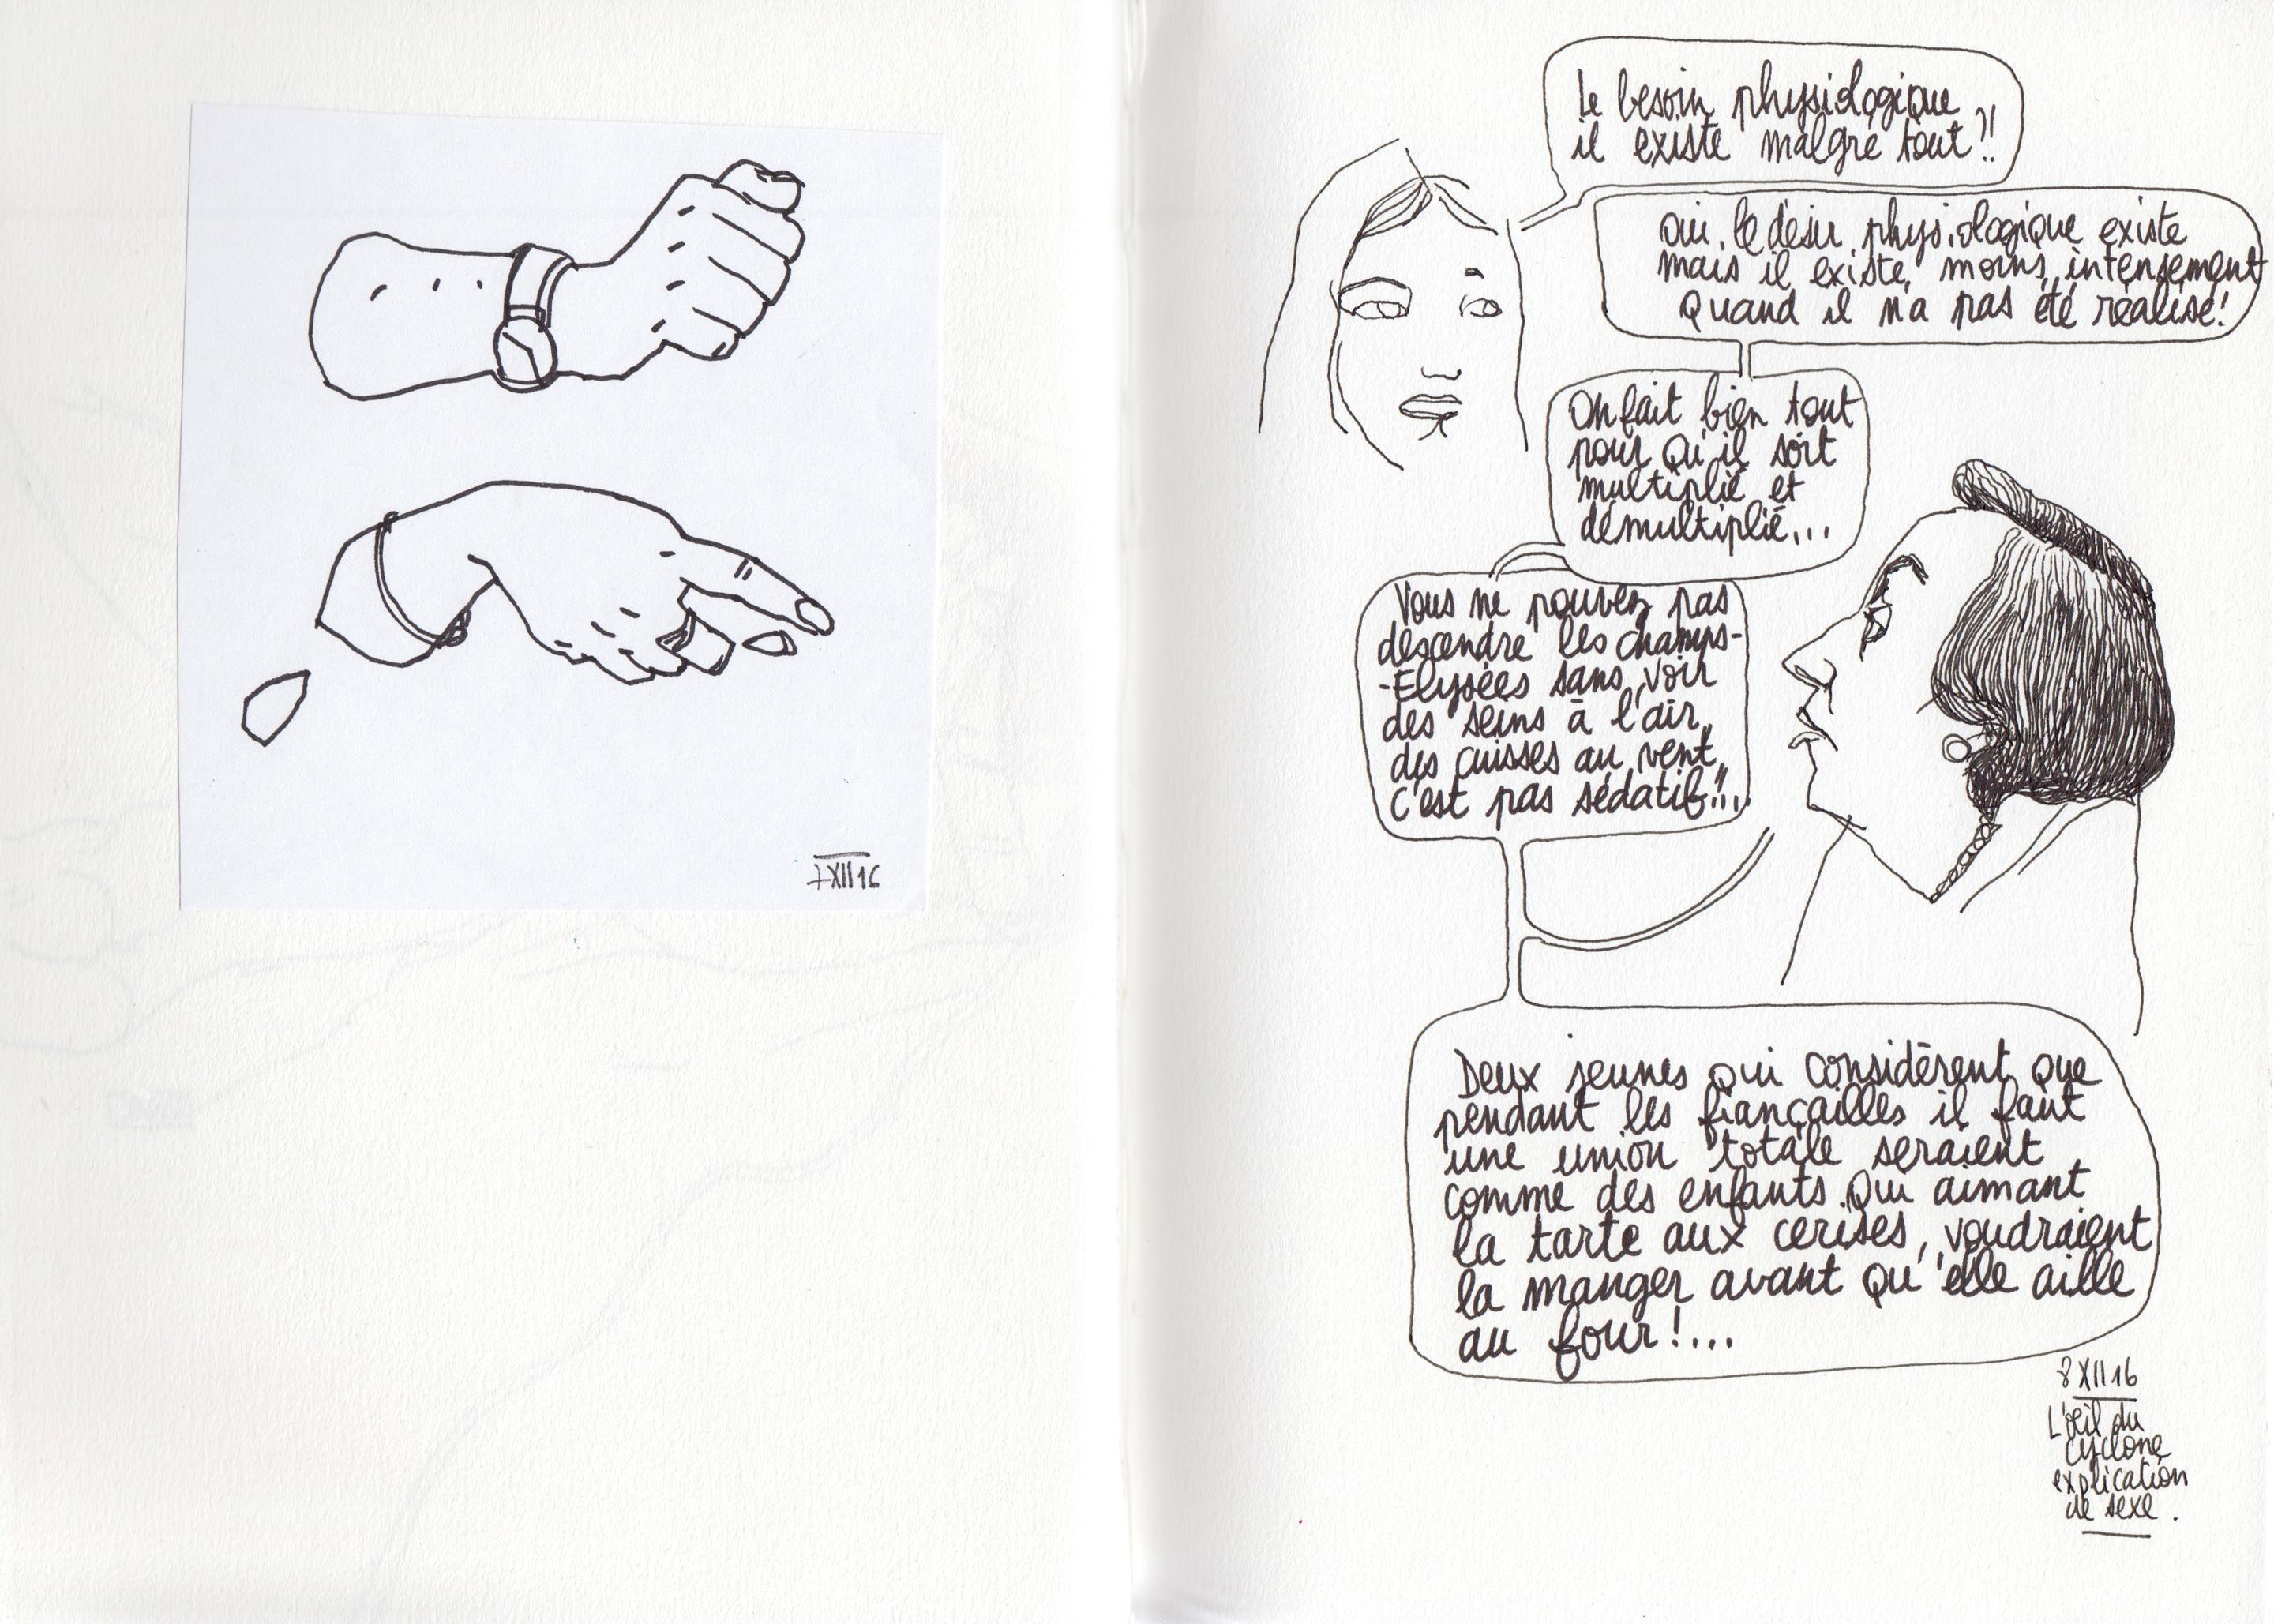 7 XII 16
Le besoin physiologique
il existe malgré tout ?!
Oui, le désir physiologique existe
mais il existe moins intensément
quand il n'a pas été réalisé!
On fait bien tout
pour qu'il soit
multiplié et
démultiplié...
Vous ne pouvez pas
descendre les champs-
-Elysées sans voir
des seins à l'air,
des cuisses au vent,
c'est pas sédatif!!...
Deux jeunes qui considèrent que
pendant les fiançailles il faut
une union totale seraient
comme des enfants qui aimant
la tarte aux cerises, voudraient
la manger avant qu'elle aille
au four!...
8 XII 16
L'œil du
cyclone
explication
de sexe.